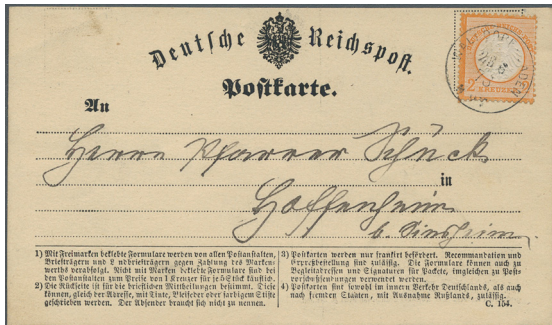 Deutsche Reichspost.
Postkarte.
An
Herrn Pfarrer Schück
in
Hoffenheim
b. Sinsheim.
2 KREUZER
1) Mit Freimarken beklebte Formulare werden von allen Postanstalten,
Briefträgern und Landbriefträgern gegen Zahlung des Marken-
werths verabfolgt. Nicht mit Marken beklebte Formulare sind bei
den Postanstalten zum Preise von 1 Kreuzer für je 5 Stück käuflich.
2) Die Rückseite ist für die brieflichen Mittheilungen bestimmt. Diese
können, gleich der Adresse, mit Tinte, Bleifeder oder farbigem Stifte
geschrieben werden. Der Absender braucht sich nicht zu nennen.
3) Postkarten werden nur frankirt befördert. Recommandation und
Expreßbestellung sind zulässig. Die Formulare können auch zu
Begleitadressen und Signaturen für Packete, imgleichen zu Post-
vorschußsendungen verwendet werden.
4) Postkarten sind sowohl im innern Verkehr Deutschlands, als auch
nach fremden Staaten, mit Ausnahme Rußlands, zulässig.
C. 154.